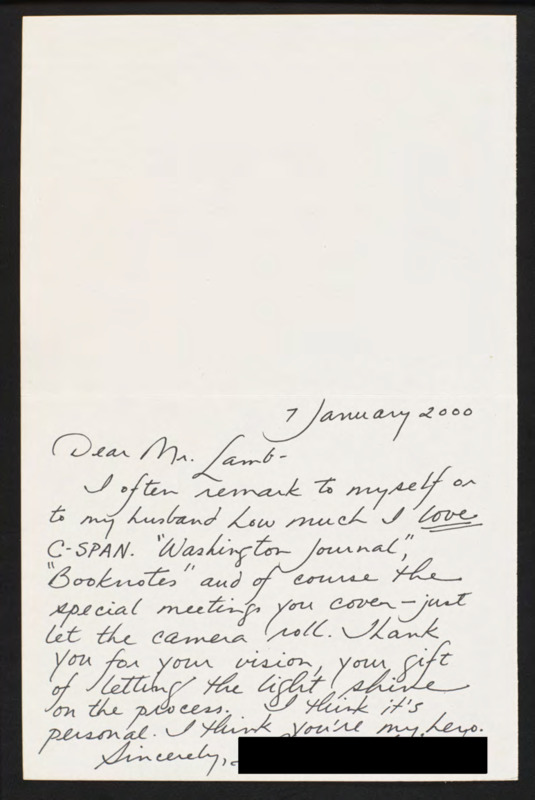 7 January 2000
Dear Mr. Lamb-
I often remark to myself or
to my husband how much I love
C-SPAN. "Washington Journal",
"Booknotes" and of course the
special meetings you cover - just
let the camera roll. Thank
you for your vision, your gift
of letting the light shine
on the process. I think it's
personal. I think you're my hero.
Sincerely,